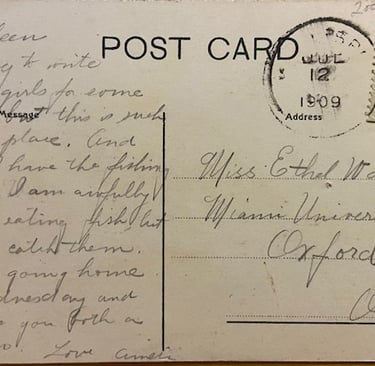 een
POST CARD
JUL
12
1909
Message
Address
y to write
girls for some
but this is such
place. And
have the fishing
I am awfully
eating fish but
catch them.
going home
dnesday and
you both a
Love
Miss Ethel Wa
Miami Univer
Oxford
O